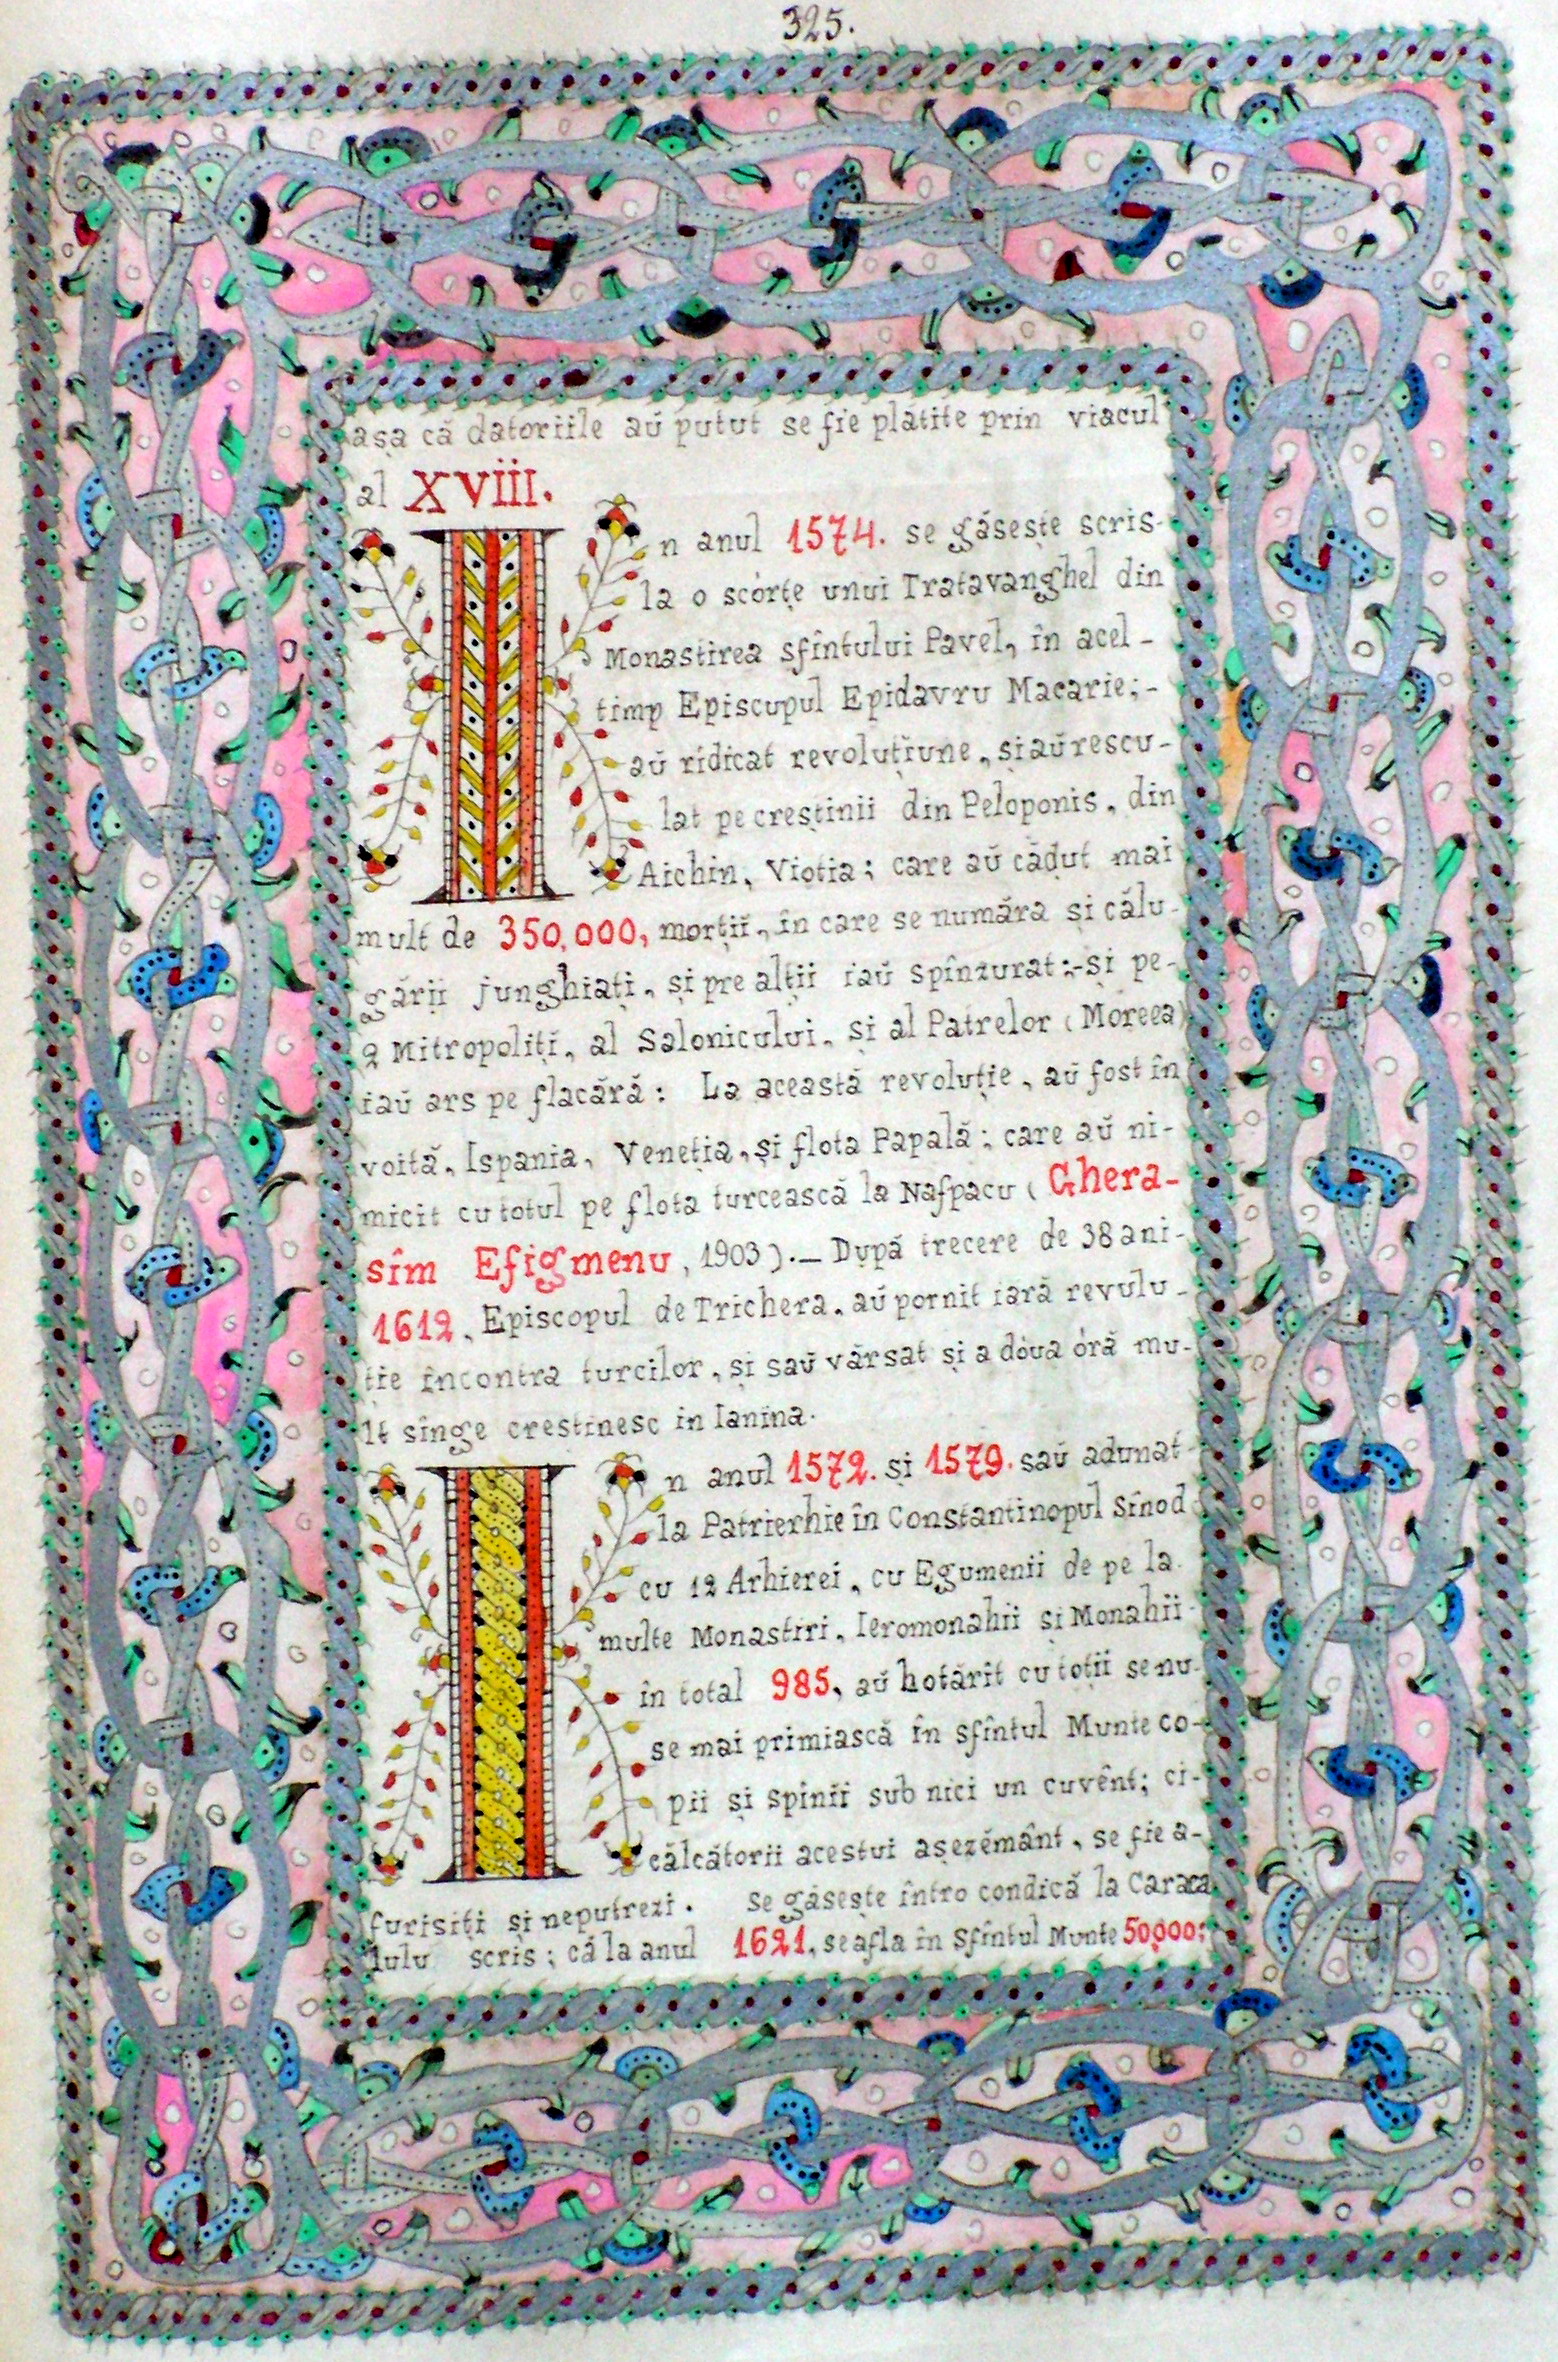 325.
așa că datoriile aŭ putut se fie platite prin viacul
al XVIII.
In anul 1574. se găsește scris-
la o scórțe unui Tratavanghel din
Monastirea sfîntului Pavel, în acel-
timp Episcupul Epidavru Macarie;-
aŭ rídicat revoluțiune, și aŭ rescu-
lat pe creștinii din Peloponis, din
Aichin, Viotia; care aŭ cădut mai
mult de 350,000, morții, în care se număra și călu-
gării junghiați, și pre alții iaŭ spînzurat;-și pe-
2 Mitropoliți, al Salonicului, și al Patrelor (Moreea)
iaŭ ars pe flacără: La această revoluție, aŭ fost în
voită, Ispania, Veneția, și flota Papală; care aŭ ni-
micit cu totul pe flota turcească la Nafpacu (Ghera-
sîm Efigmenu, 1903).— După trecere de 38 ani-
1612, Episcopul de Trichera, aŭ pornit iară revulu-
ție încontra turcilor, și saŭ vărsat și a doua óră mu-
lt sînge creștinesc in Ianina.
In anul 1572. și 1579. saŭ adunat
la Patrierhie în Constantinopul Sînod
cu 12 Arhierei, cu Egumenii de pe la
multe Monastiri, Ieromonahii și Monahii
în total 985, aŭ hotărît cu toții se nu-
se mai primiască în sfîntul Munte co-
pii și spînii sub nici un cuvênt; ci-
călcătorii acestui așezěmânt, se fie a-
furisiți și neputrezi. Se găsește întro condică la Caraca
lulu scris; că la anul 1621, se afla în Sfîntul Munte 50,000;